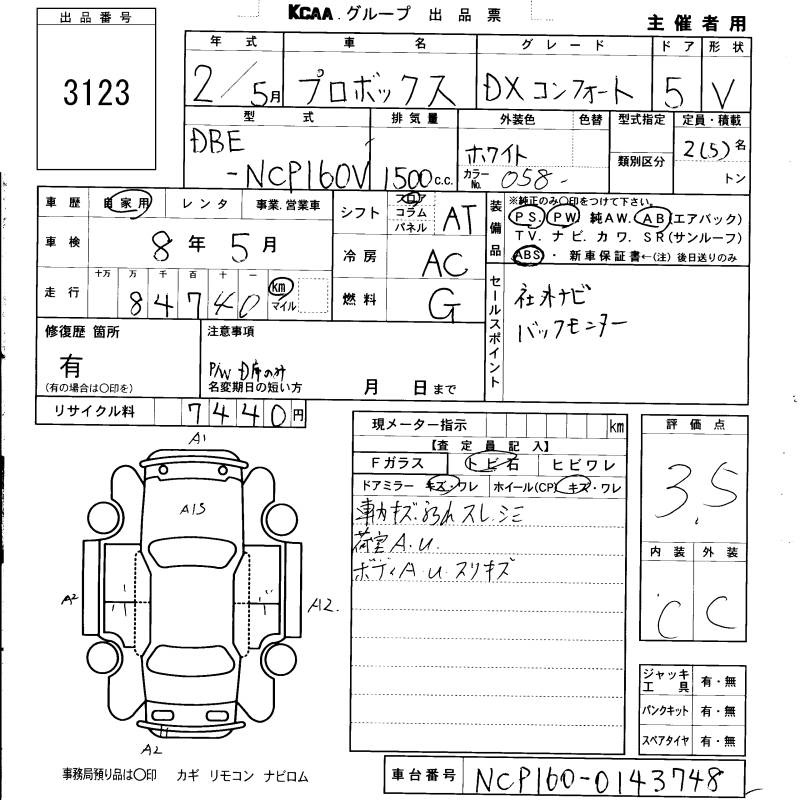 KCAA グループ 出品票
主催者用
出品番号
3123
年式 車名 グレード ドア 形状
2/5月 プロボックス DXコンフォート 5 V
型式 排気量 外装色 色替 型式指定 定員・積載
DBE ホワイト 2(5)名
-NCP160V 1500c.c. カラーNo. 058- 類別区分 トン
車歴 自家用 レンタ 事業.営業車
車検 8年5月
走行 十万 万 千 百 十 一
84740 km マイル
シフト フロア コラム パネル AT
冷房 AC
燃料 G
装備品 ※純正のみ〇印をつけて下さい。
PS. PW 純AW. AB(エアバック)
TV. ナビ. カワ. SR(サンルーフ)
ABS・ 新車保証書←(注) 後日送りのみ
セールスポイント 社外ナビ
バックモニター
修復歴 箇所
有
(有の場合は〇印を)
注意事項
P/W D席のみ
名変期日の短い方 月 日まで
リサイクル料 7440円
現メーター指示 km
【査定員記入】
Fガラス トビ石 ヒビワレ
ドアミラー キズ・ワレ ホイール(CP) キズ・ワレ
荷室A.u.
ボディA.u.スリキズ
評価点
3.5
内装 外装
C C
ジャッキ工具 有・無
パンクキット 有・無
スペアタイヤ 有・無
A1
A1S
A2
A2.
A2
事務局預り品は〇印 カギ リモコン ナビロム
車台番号 NCP160-0143748